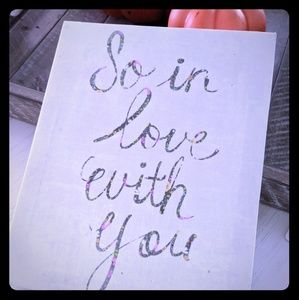 So in
love
with
you